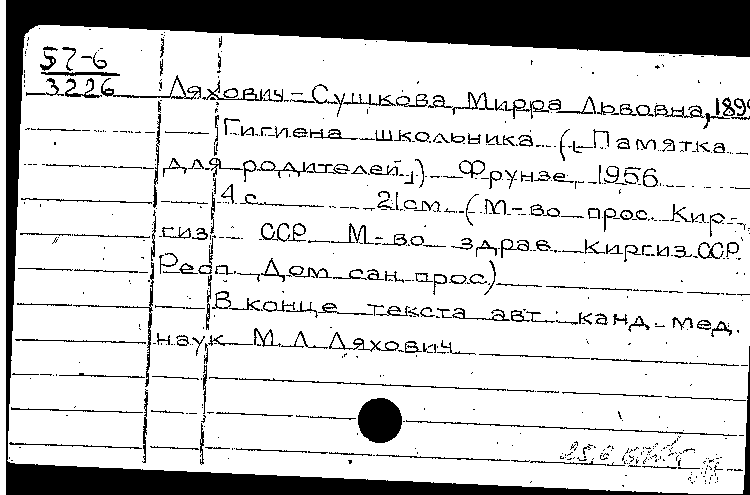 57-6
3226
Ляхович-Сушкова, Мирра Львовна, 1899
Гигиена школьника („Памятка
для родителей„) Фрунзе, 1956
4 с. 21 см. (М-во прос. Кир-
гиз. ССР. М-во здрав. Киргиз.ССР.
Респ. Дом сан. прос)
В конце текста авт.: канд. мед.
наук М. Л. Ляхович